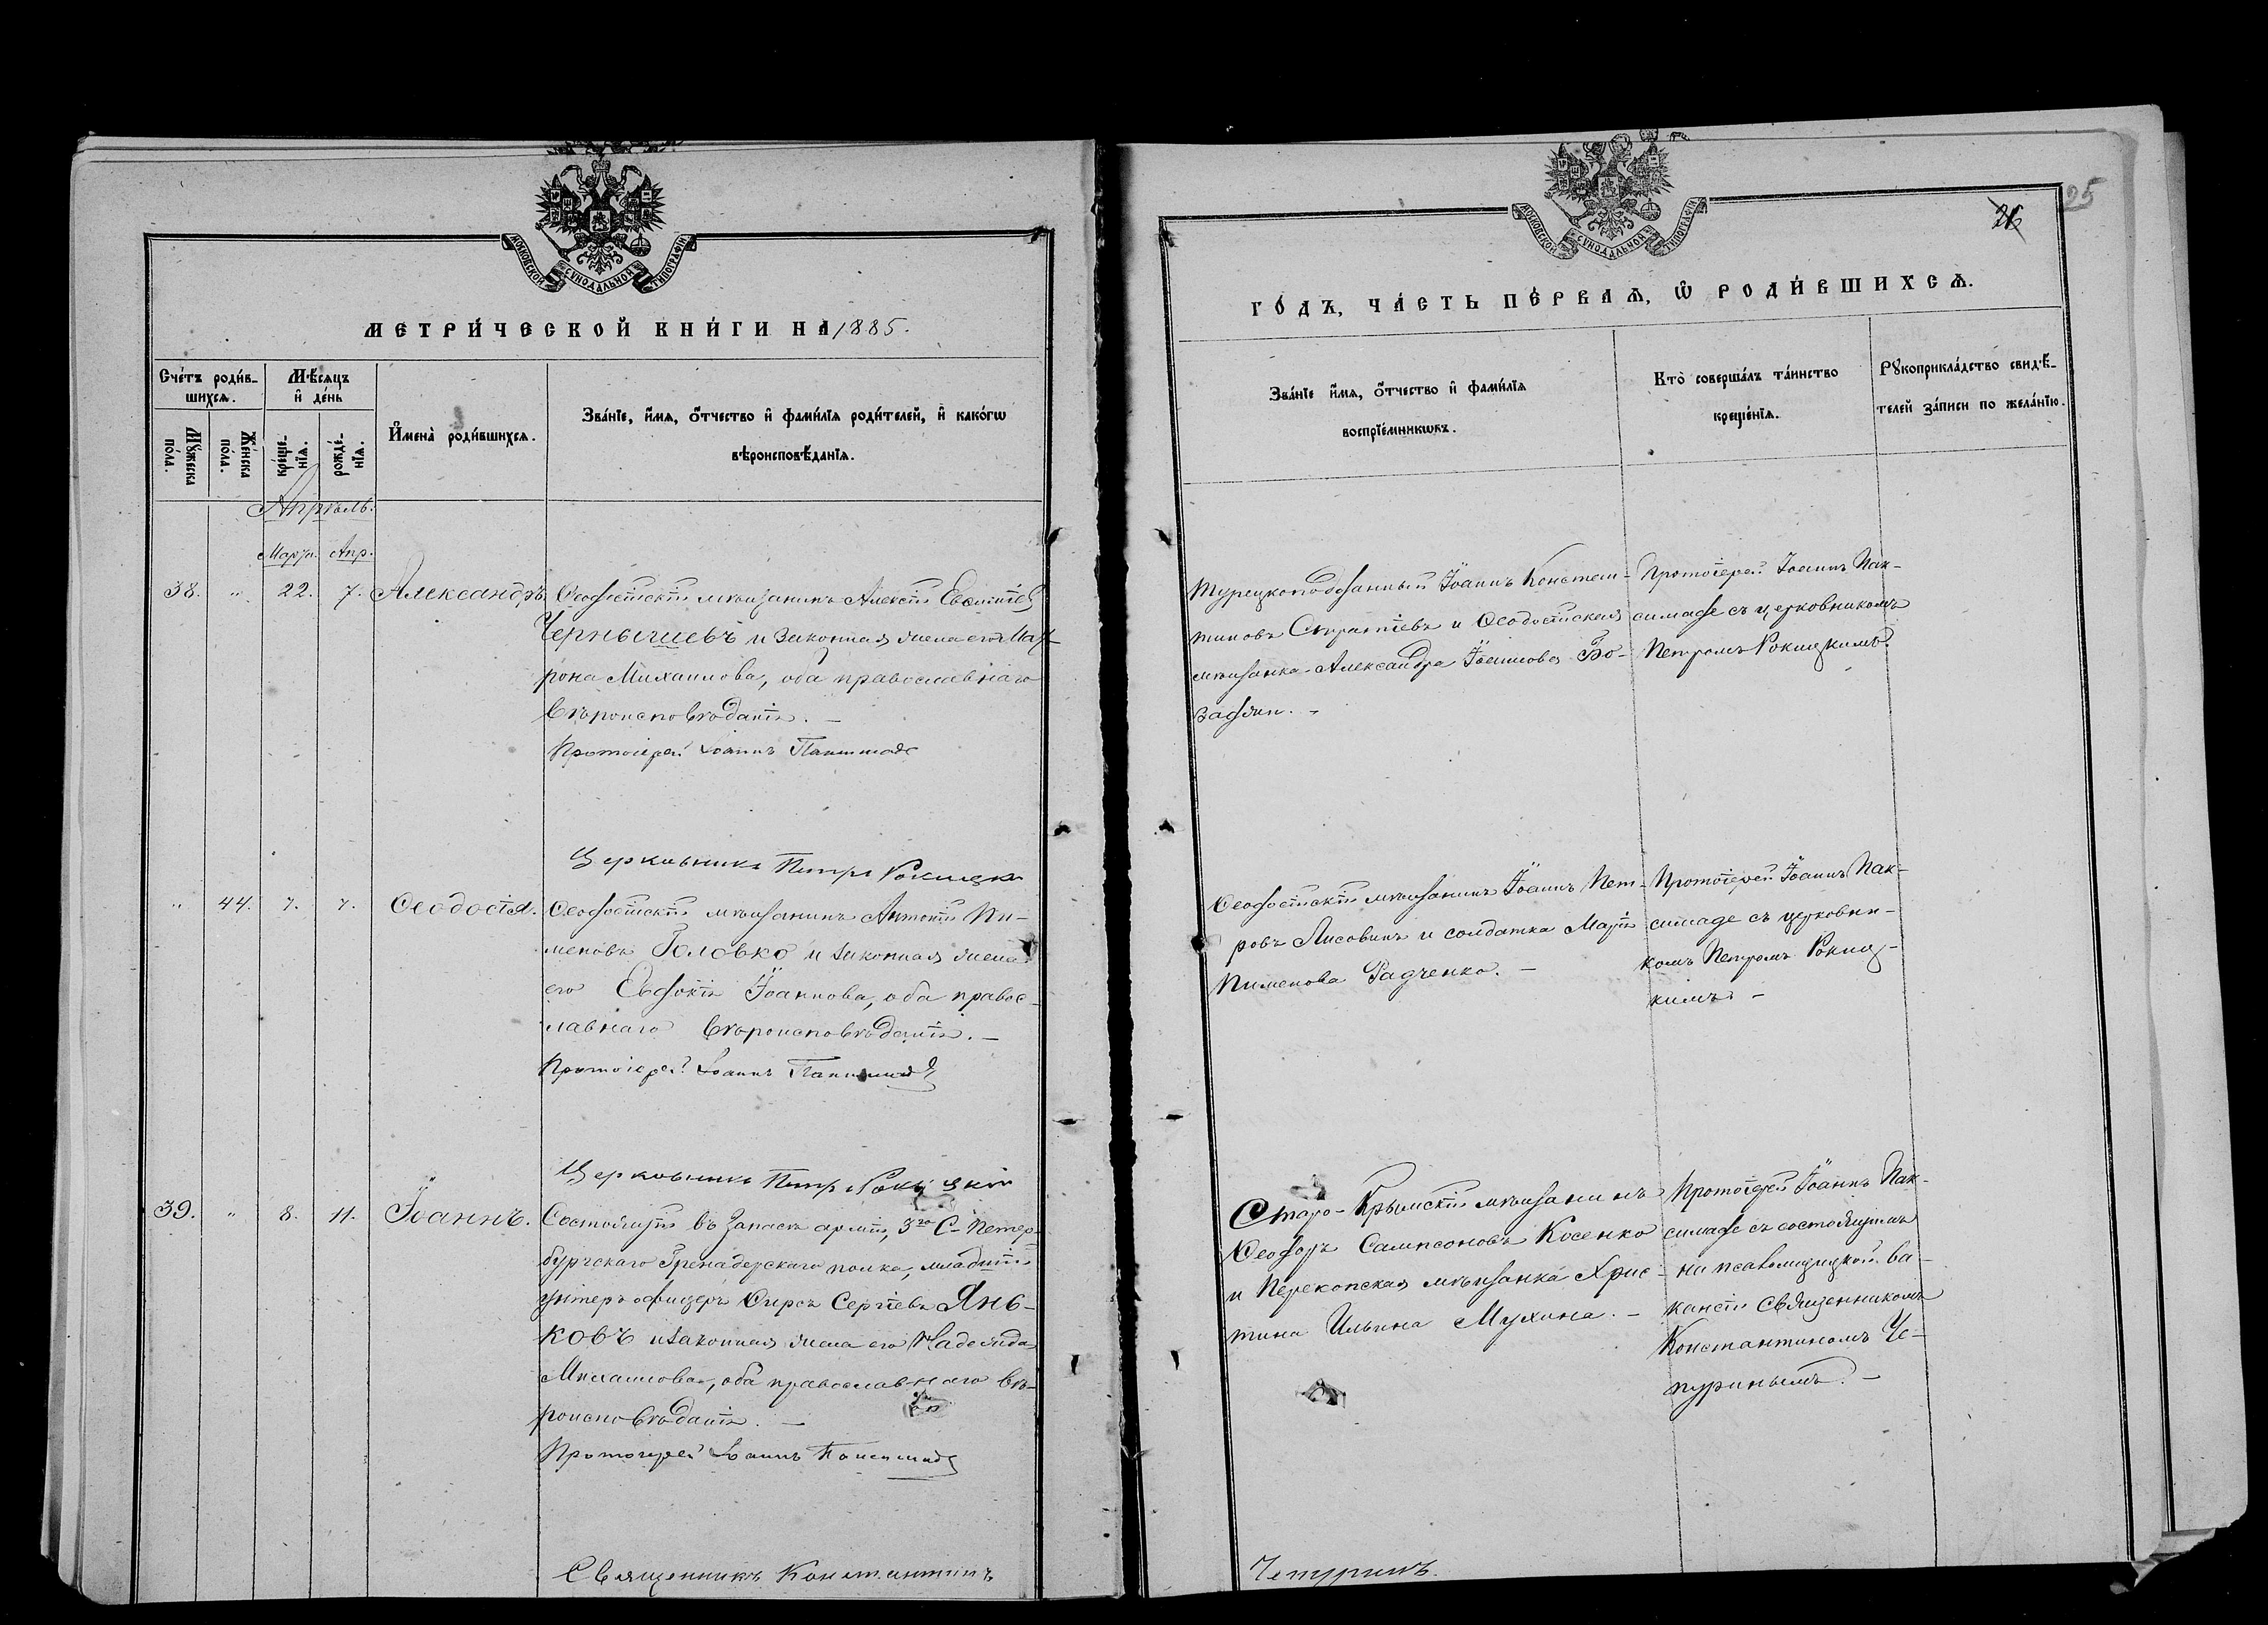 МОСКОВСКОЙ СѴНОДАЛЬНОЙ ТИПОГРАФІИ
МЕТРИ́ЧЕСКОЙ КНИ́ГИ НА 1885.
Сче́тъ роди́в-
шихсѧ.
Мѣ́сѧцъ
и҆ де́нь
Мꙋ́жеска
по́ла.
Же́нска
по́ла.
креще́-
нїѧ.
рожде́-
нїѧ.
И҆мена̀ роди́вшихсѧ.
Зва́нїе, и҆́мѧ, ѻ҆́тчество и҆ фами́лїѧ роди́телей, и҆ како́гѡ
вѣроисповѣ́данїѧ.
Апрѣль.
Марта. Апр.
38. " 22. 7. Александръ.
Ѳеодосійскій мѣщанинъ Алексій
Чернышевъ и законная жена его Мат-
рона Михаилова, оба православнаго
вѣроисповѣданія. —
Протоіерей Іоаннъ Паксимаде
Церковникъ Петръ Рокицкій
" 44. 7. 7. Ѳеодосія.
Ѳеодосійскій мѣщанинъ Антоній Пи-
меновъ Головко и законная жена
его Евдокія Іоаннова, оба правос-
лавнаго вѣроисповѣданія. —
Протоіерей Іоаннъ Паксимаде
Церковникъ Петръ Рокицкій
39. " 8. 11. Іоаннъ.
Состоящій въ запасѣ арміи, 3го С-Петер-
бургскаго Гренадерскаго полка, младшій
унтеръ офицеръ Ѳирсъ Сергіевъ Янь-
ковъ и законная жена его Надежда
Михаилова, оба православнаго вѣ-
роисповѣданія. —
Протоіерей Іоаннъ Паксимаде
Священникъ Константинъ
МОСКОВСКОЙ СѴНОДАЛЬНОЙ ТИПОГРАФІИ
26
25
ГО́ДЪ, ЧА́СТЬ ПЕ́РВАѦ, Ѽ РОДИ́ВШИХСѦ.
Зва́нїе и҆́мѧ, ѻ҆́тчество и҆ фами́лїѧ
воспрїе́мникѡвъ.
Кто̀ соверша́лъ та́инство
креще́нїѧ.
Рꙋкоприкла́дство свидѣ́-
телей за́писи по жела́нїю.
Турецкоподданный Іоаннъ Констан-
тиновъ и Ѳеодосійская
мѣщанка Александра Іоаннова Бо-
Протоіерей Іоаннъ Пак-
симаде съ церковникомъ
Петромъ Рокицкимъ.
Ѳеодосійскій мѣщанинъ Іоаннъ Пет-
ровъ Лисовинъ и солдатка Марія
Пименова Радченко. —
Протоіерей Іоаннъ Пак-
симаде съ церковни-
комъ Петромъ Рокиц-
кимъ. —
Старо-Крымскій мѣщанинъ
Ѳеодоръ Сампсоновъ Косенко
и Перекопская мѣщанка Хрис-
тина Ильина Мухина. —
Протоіерей Іоаннъ Пак-
симаде съ состоящимъ
на псаломщицкой ва-
кансіи Священникомъ
Константиномъ Че-
пуринымъ. —
Чепуринъ.